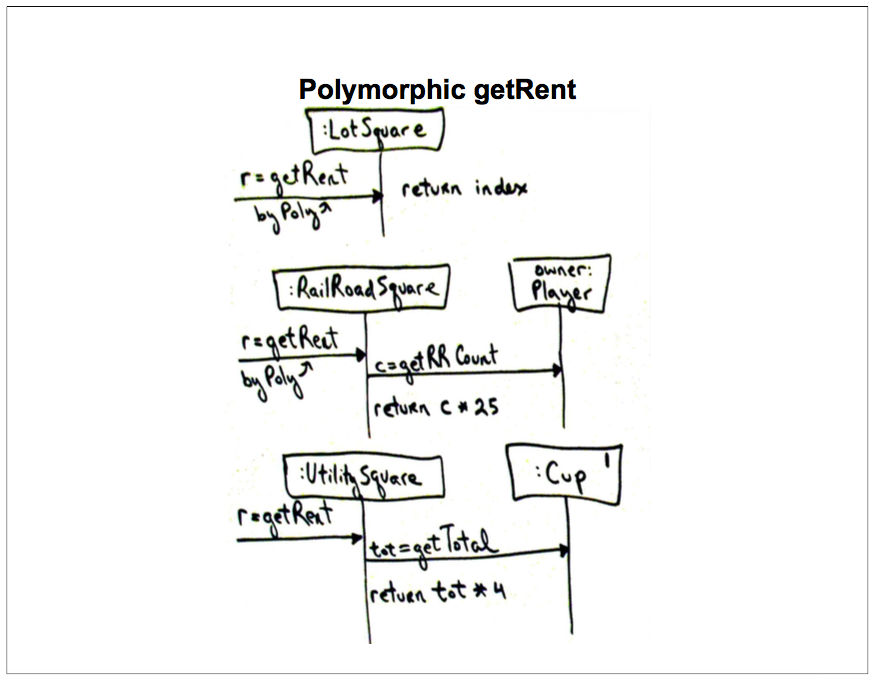 Polymorphic getRent
:LotSquare
r=getRent
by Poly
return index
:RailRoadSquare
owner:
Player
r=getRent
by Poly
c=getRR Count
return c * 25
:UtilitySquare
:Cup 1
r=getRent
tot=getTotal
return tot * 4